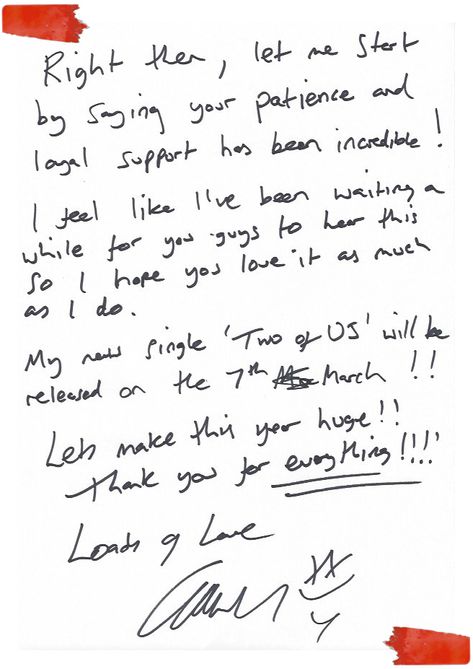 Right then, let me start
by saying your patience and
loyal support has been incredible!
I feel like I've been waiting a
while for you guys to hear this
so I hope you love it as much
as I do.
My new single 'Two of US' will be
released on the 7th March !!
Lets make this year huge!!
Thank you for everything!!!!
Loads of Love
xx